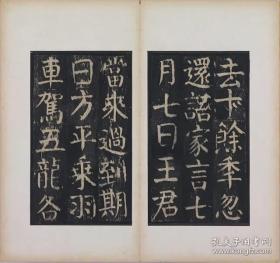 去十餘年忽
還語家言七
月七日王君
當來過到期
日方平乘羽
車駕五龍各